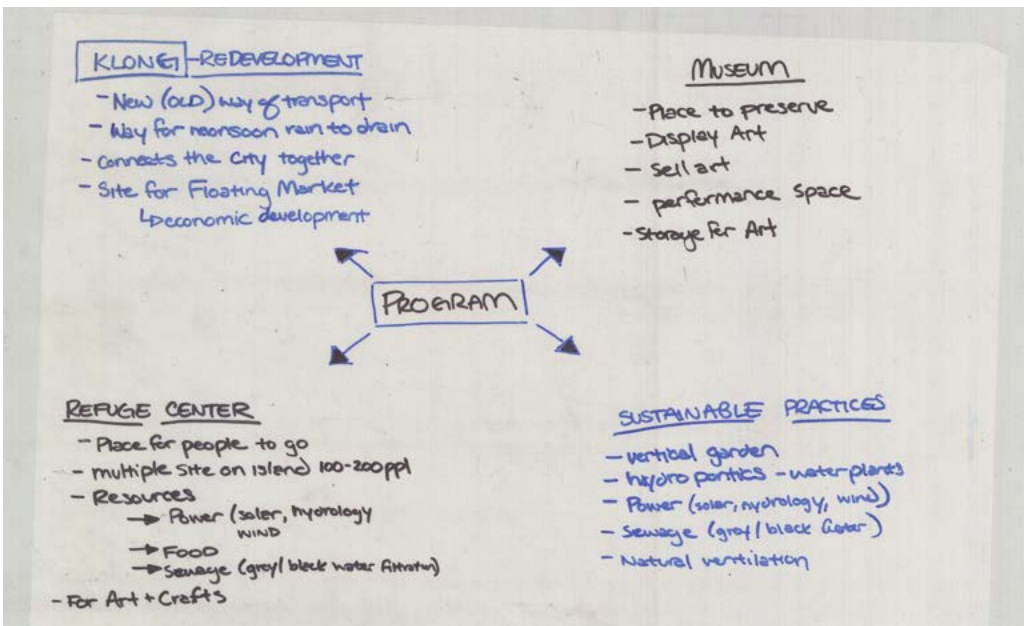 KLONG - REDEVELOPMENT
- New (OLD) way of transport
- Way for monsoon rain to drain
- connects the City together
- Site for Floating Market
↳ economic development
MUSEUM
- Place to preserve
- Display Art
- Sell art
- performance space
- Storage for Art
PROGRAM
REFUGE CENTER
- Place for people to go
- multiple site on island 100-200ppl
- Resources
→ Power (solar, hydrology
WIND
→ FOOD
→ Sewage (grey/black water filtration)
- For Art + Crafts
SUSTAINABLE PRACTICES
- vertical garden
- hydro pontics - water plants
- Power (solar, hydrology, wind)
- Sewage (grey/black water)
- Natural ventilation